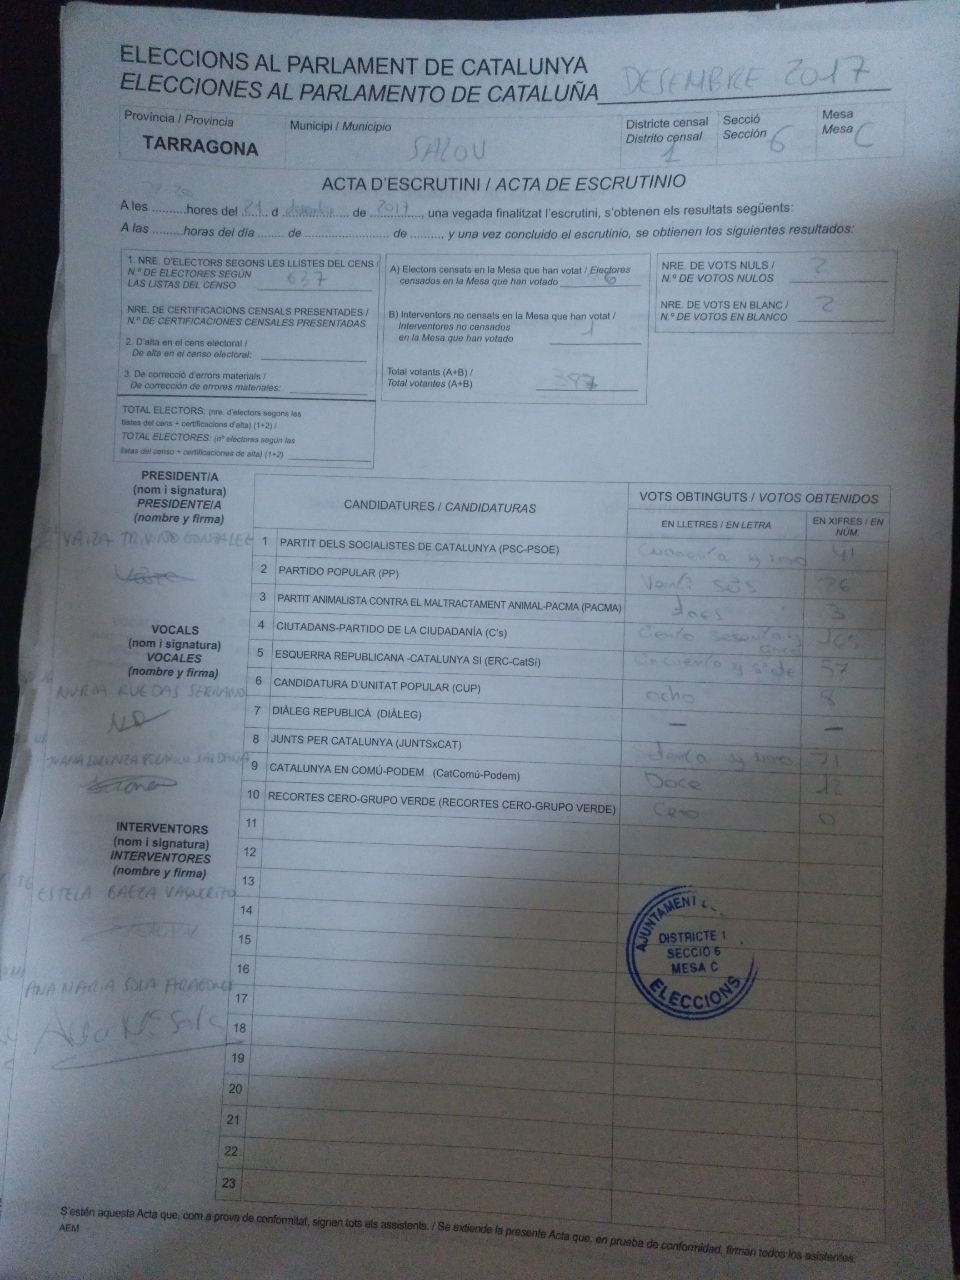 ELECCIONS AL PARLAMENT DE CATALUNYA
ELECCIONES AL PARLAMENTO DE CATALUÑA DESEMBRE 2017
Província / Provincia
TARRAGONA
Municipi / Municipio
SALOU
Districte censal
Distrito censal
1
Secció
Sección
6
Mesa
Mesa
C
ACTA D'ESCRUTINI / ACTA DE ESCRUTINIO
A les ..........hores del 21 d ........ de 2017, una vegada finalitzat l'escrutini, s'obtenen els resultats següents:
A las .........horas del día ........ de ......................... de .........., y una vez concluido el escrutinio, se obtienen los siguientes resultados:
1. NRE. D'ELECTORS SEGONS LES LLISTES DEL CENS /
N.º DE ELECTORES SEGÚN
LAS LISTAS DEL CENSO 637
NRE. DE CERTIFICACIONS CENSALS PRESENTADES /
N.º DE CERTIFICACIONES CENSALES PRESENTADAS
2. D'alta en el cens electoral /
De alta en el censo electoral:
3. De correcció d'errors materials /
De corrección de errores materiales:
TOTAL ELECTORS: (nre. d'electors segons les
llistes del cens + certificacions d'alta) (1+2) /
TOTAL ELECTORES: (nº electores según las
listas del censo + certificaciones de alta) (1+2)
A) Electors censats en la Mesa que han votat / Electores
censados en la Mesa que han votado
B) Interventors no censats en la Mesa que han votat /
Interventores no censados
en la Mesa que han votado 1
Total votants (A+B) /
Total votantes (A+B) 387
NRE. DE VOTS NULS /
N.º DE VOTOS NULOS 2
NRE. DE VOTS EN BLANC /
N.º DE VOTOS EN BLANCO 2
PRESIDENT/A
(nom i signatura)
PRESIDENTE/A
(nombre y firma)
VOCALS
(nom i signatura)
VOCALES
(nombre y firma)
NURIA RUEDAS SERRANO
INTERVENTORS
(nom i signatura)
INTERVENTORES
(nombre y firma)
ESTELA BAEZA VAQUERITO
ANA MARIA SOLA
CANDIDATURES / CANDIDATURAS
VOTS OBTINGUTS / VOTOS OBTENIDOS
EN LLETRES / EN LETRA
EN XIFRES / EN
NÚM.
1 PARTIT DELS SOCIALISTES DE CATALUNYA (PSC-PSOE) Cuarenta y uno 41
2 PARTIDO POPULAR (PP) Venti seis 26
3 PARTIT ANIMALISTA CONTRA EL MALTRACTAMENT ANIMAL-PACMA (PACMA) tres 3
4 CIUTADANS-PARTIDO DE LA CIUDADANÍA (C's) Ciento sesenta y cinco 165
5 ESQUERRA REPUBLICANA -CATALUNYA SÍ (ERC-CatSí) Cincuenta y siete 57
6 CANDIDATURA D'UNITAT POPULAR (CUP) ocho 8
7 DIÀLEG REPUBLICÀ (DIÀLEG) — —
8 JUNTS PER CATALUNYA (JUNTSxCAT) Setenta y uno 71
9 CATALUNYA EN COMÚ-PODEM (CatComú-Podem) Doce 12
10 RECORTES CERO-GRUPO VERDE (RECORTES CERO-GRUPO VERDE) Cero 0
11
12
13
14
15
16
17
18
19
20
21
22
23
AJUNTAMENT
DISTRICTE 1
SECCIÓ 6
MESA C
ELECCIONS
S'estén aquesta Acta que, com a prova de conformitat, signen tots els assistents. / Se extiende la presente Acta que, en prueba de conformidad, firman todos los asistentes.
AEM